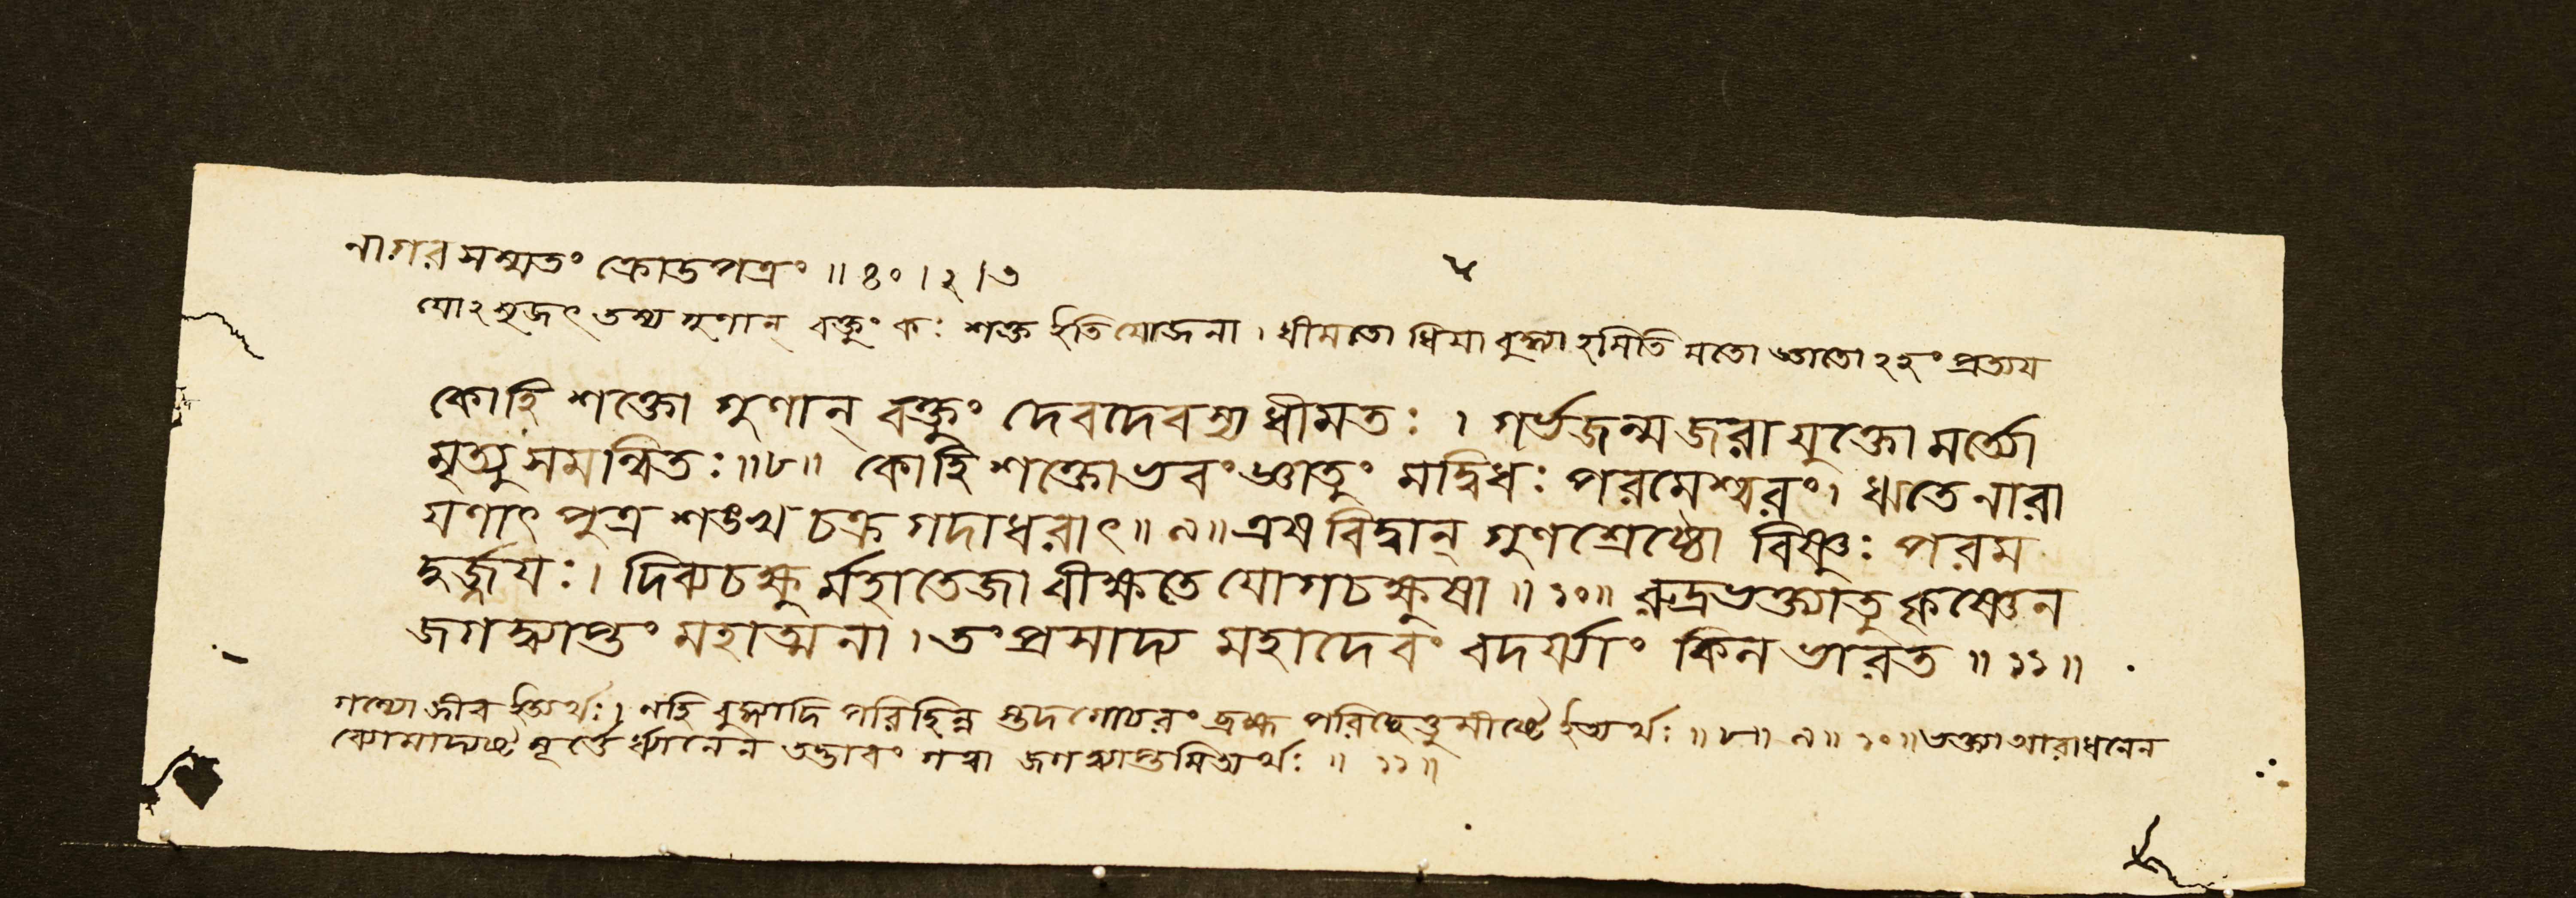 নাগরসম্মতং ক্রোডপত্রং ॥ ৪০ । ২ । ৩
যোঽসৃজৎ তস্য গুণান্ বক্তুং কঃ শক্ত ইতি যোজনা । ধীমতো ধিযা বুদ্ধ্যাঽমিতি মতো জ্ঞাতোঽহং প্রত্যয
কোহি শক্তো গুণান্ বক্তুং দেবদেবস্য ধীমতঃ । গর্ভজন্মজরাযুক্তো মর্ত্যো
মৃত্যুসমান্বিতঃ ॥ ৮ ॥ কোহি শক্তোভবং জ্ঞাতুং মদ্বিধঃ পরমেশ্বরং । ঋতে নারা
যণাৎ পুত্র শঙ্খচক্রগদাধরাৎ ॥ ৯ ॥ এষ বিদ্বান্ গুণশ্রেষ্ঠো বিষ্ণুঃ পরম
দুর্জ্জযঃ । দিব্যচক্ষুর্মহাতেজা বীক্ষতে যোগচক্ষুষা ॥ ১০ ॥ রুদ্রভক্ত্যাতু কৃষ্ণেন
জগদ্ব্যাপ্তং মহাত্মনা । তং প্রসাদ্য মহাদেবং বদর্য্যাং কিল ভারত ॥ ১১ ॥
গম্যো জীব ইত্যর্থঃ । নহি বুদ্ধ্যাদি পরিছিন্ন স্তদগোচরং ব্রহ্ম পরিছেত্তুমীষ্টে ইত্যর্থঃ ॥ ৮ ॥ ৯ ॥ ১০ ॥ ভক্ত্যা আরাধনেন
মূর্ত্তের্ধ্যানেন তদ্ভাবং গত্বা জগদ্ব্যাপ্তমিত্যর্থঃ ॥ ১১ ॥